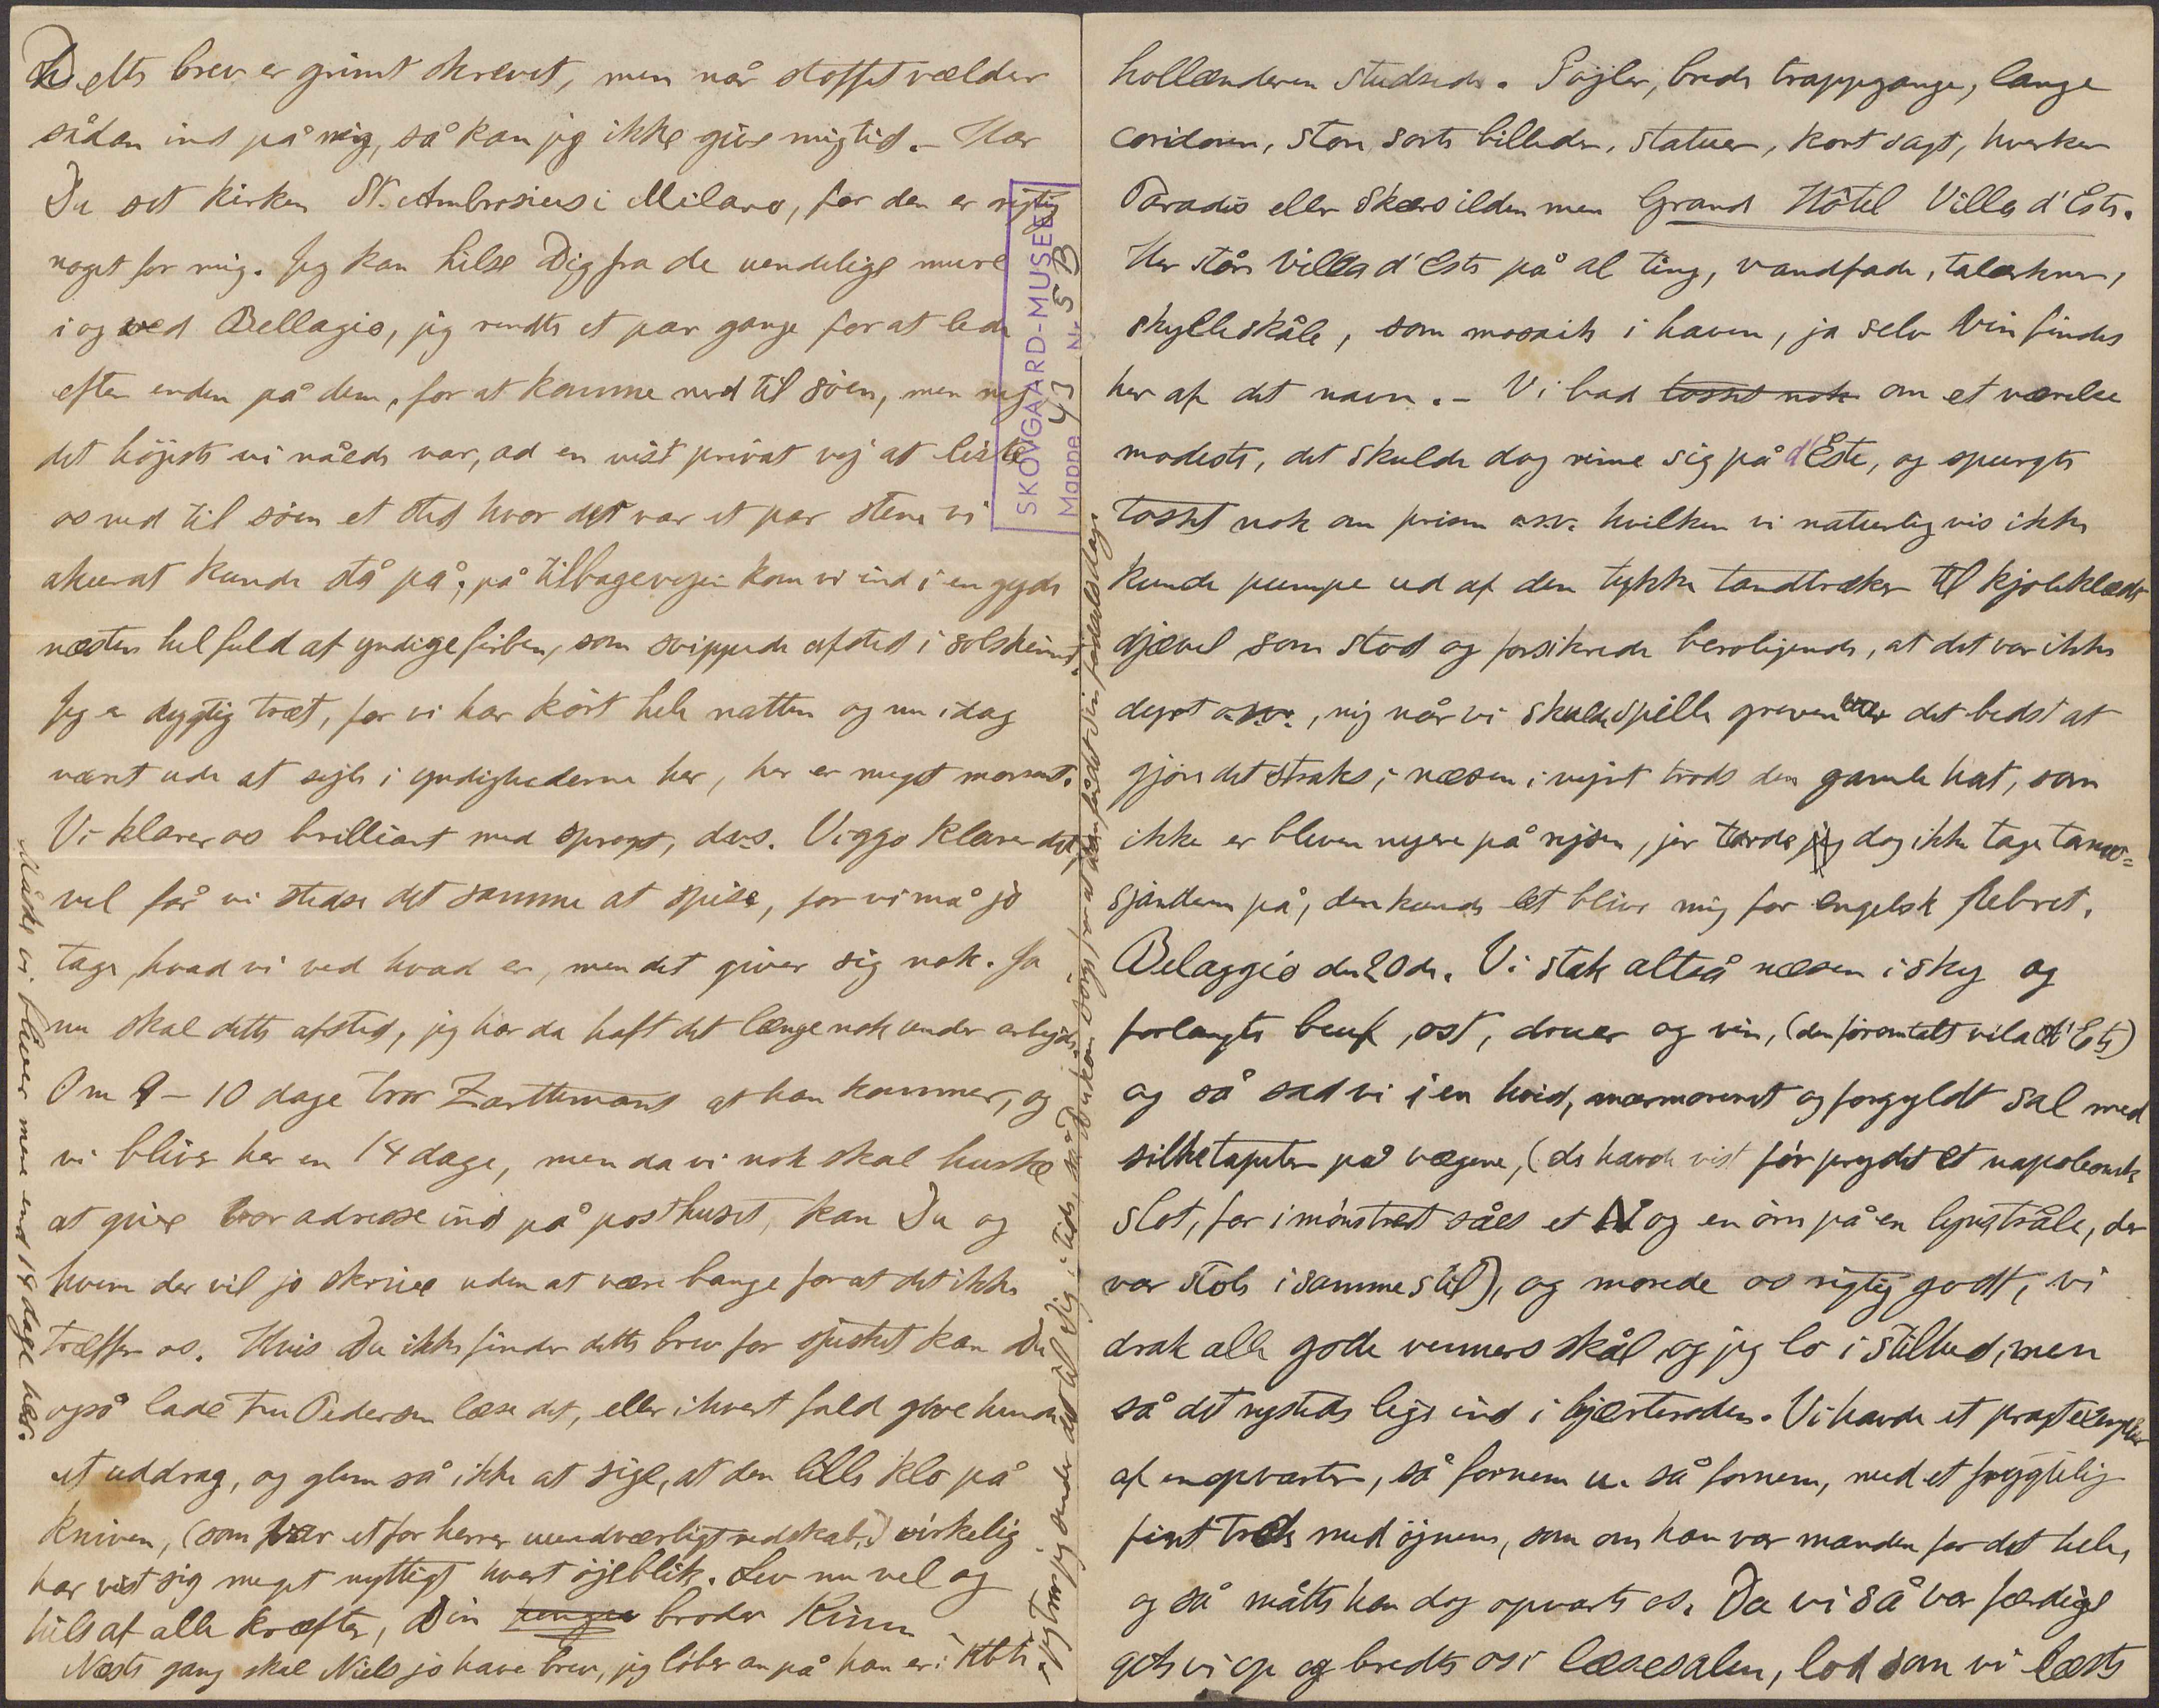 Dette brev er grimt skrevet, men når stoffet vælder
sådan ind på mig, så kan jeg ikke give mig tid. – Har
Du set kirken St. Ambrosius i Milano, for den er rigtig
noget for mig. Jeg kan hilse Dig fra de uendelige mure
i og ved Bellagio, jeg rendte et par gange for at lede
efter enden på dem, for at komme ned til søen, men nej
det højeste vi nåede var, ad en vist privat vej at liste
os ned til søen et sted hvor det var et par stene vi
akurat kunde stå på; på tilbagevejen kom vi ind i en gyde
næsten hel fuld af yndige firben, som svippede afsted i solskinnet.
Jeg er dygtig træt, for vi har kørt hele natten og nu idag
været ude at sejle i yndighederne her, her er meget morsomt.
Vi klarer os brilliant med sproget, dvs. Viggo klarer det,
vel får vi stedse det samme at spise, for vi må jo
tage, hvad vi ved hvad er, men det giver sig nok. Ja
nu skal dette afsted, jeg har da haft det længe nok under arbejde.
Om 9 – 10 dage tror Zarttmann at han kommer, og
vi bliver her en 14 dage, men da vi nok skal huske
at give vor adresse ind på posthuset, kan Du og
hvem der vil jo skrive uden at være bange for at det ikke
træffer os. Hvis Du ikke finder dette brev for sjusket kan Du
også lade Fru Pedersen læse det, eller ihvert fald give hende
et uddrag, og glem så ikke at sige, at den lille klo på
kniven, (som var et for herrer uundværligt redskab,) virkelig
har vist sig meget nyttigt hvert øjeblik. Lev nu vel og
hils af alle kræfter, Din broder Rimm
Næste gang skal Niels jo have brev, jeg løber an på han er i Kbh.
Måske vi bliver mere end 14 dage her.
SKOVGAARD-MUSEET
Mappe 43 Nr. 5 B
hollænderen studsede. Søjler, brede trappegange, lange
coridorer, store sorte billeder, statuer, kort sagt, hverken
Paradis eller Skærsilden men Grand Hôtel Villa d'Este.
Her står Villa d'Este på al ting, vandfade, talærkner,
skylleskåle, som mosaik i haven, ja selv Vin findes
her af det navn. – Vi bad tosset nok om et værelse
modeste, det skulde dog rime sig på d'Este, og spurgte
tosset nok om prisen osv. hvilken vi naturligvis ikke
kunde pumpe ud af den tykke tandtrækker til kjoleklædt
djævel som stod og forsikrede beroligende, at det var ikke
dyrt osv., nej når vi skulde spille greven var det bedst at
gjøre det straks; næsen i vejret trods den gamle hat, som
ikke er bleven nyere på rejsen, jer torde jeg dog ikke tage
på, den kunde let blive mig for engelsk flebret.
Belaggio den 20de. Vi stak altså næsen i sky og
forlangte beuf, ost, druer og vin, (den føromtalt vila d'Este)
og så sad vi i en hvid, marmoreret og forgyldt sal med
silketapeter på vægene, (de havde vist før prydet et napoleonsk
slot, for i mønstret såes et N og en ørn på en lynstråle, der
var stole i samme stil), og morede os rigtig godt, vi
drak alle gode venners skål, og jeg lo i stilhed, men
så det rystede lige ind i hjærteroden. Vi havde et pragtexemplar
af en opvarter, så fornem u. så fornem, med et frygtelig
fint træk med øjnene, som om han var manden for det hele,
og så måtte han dog opvarte os. Da vi så var færdige
gik vi op og bredte os i læsesalen, lod som vi læste